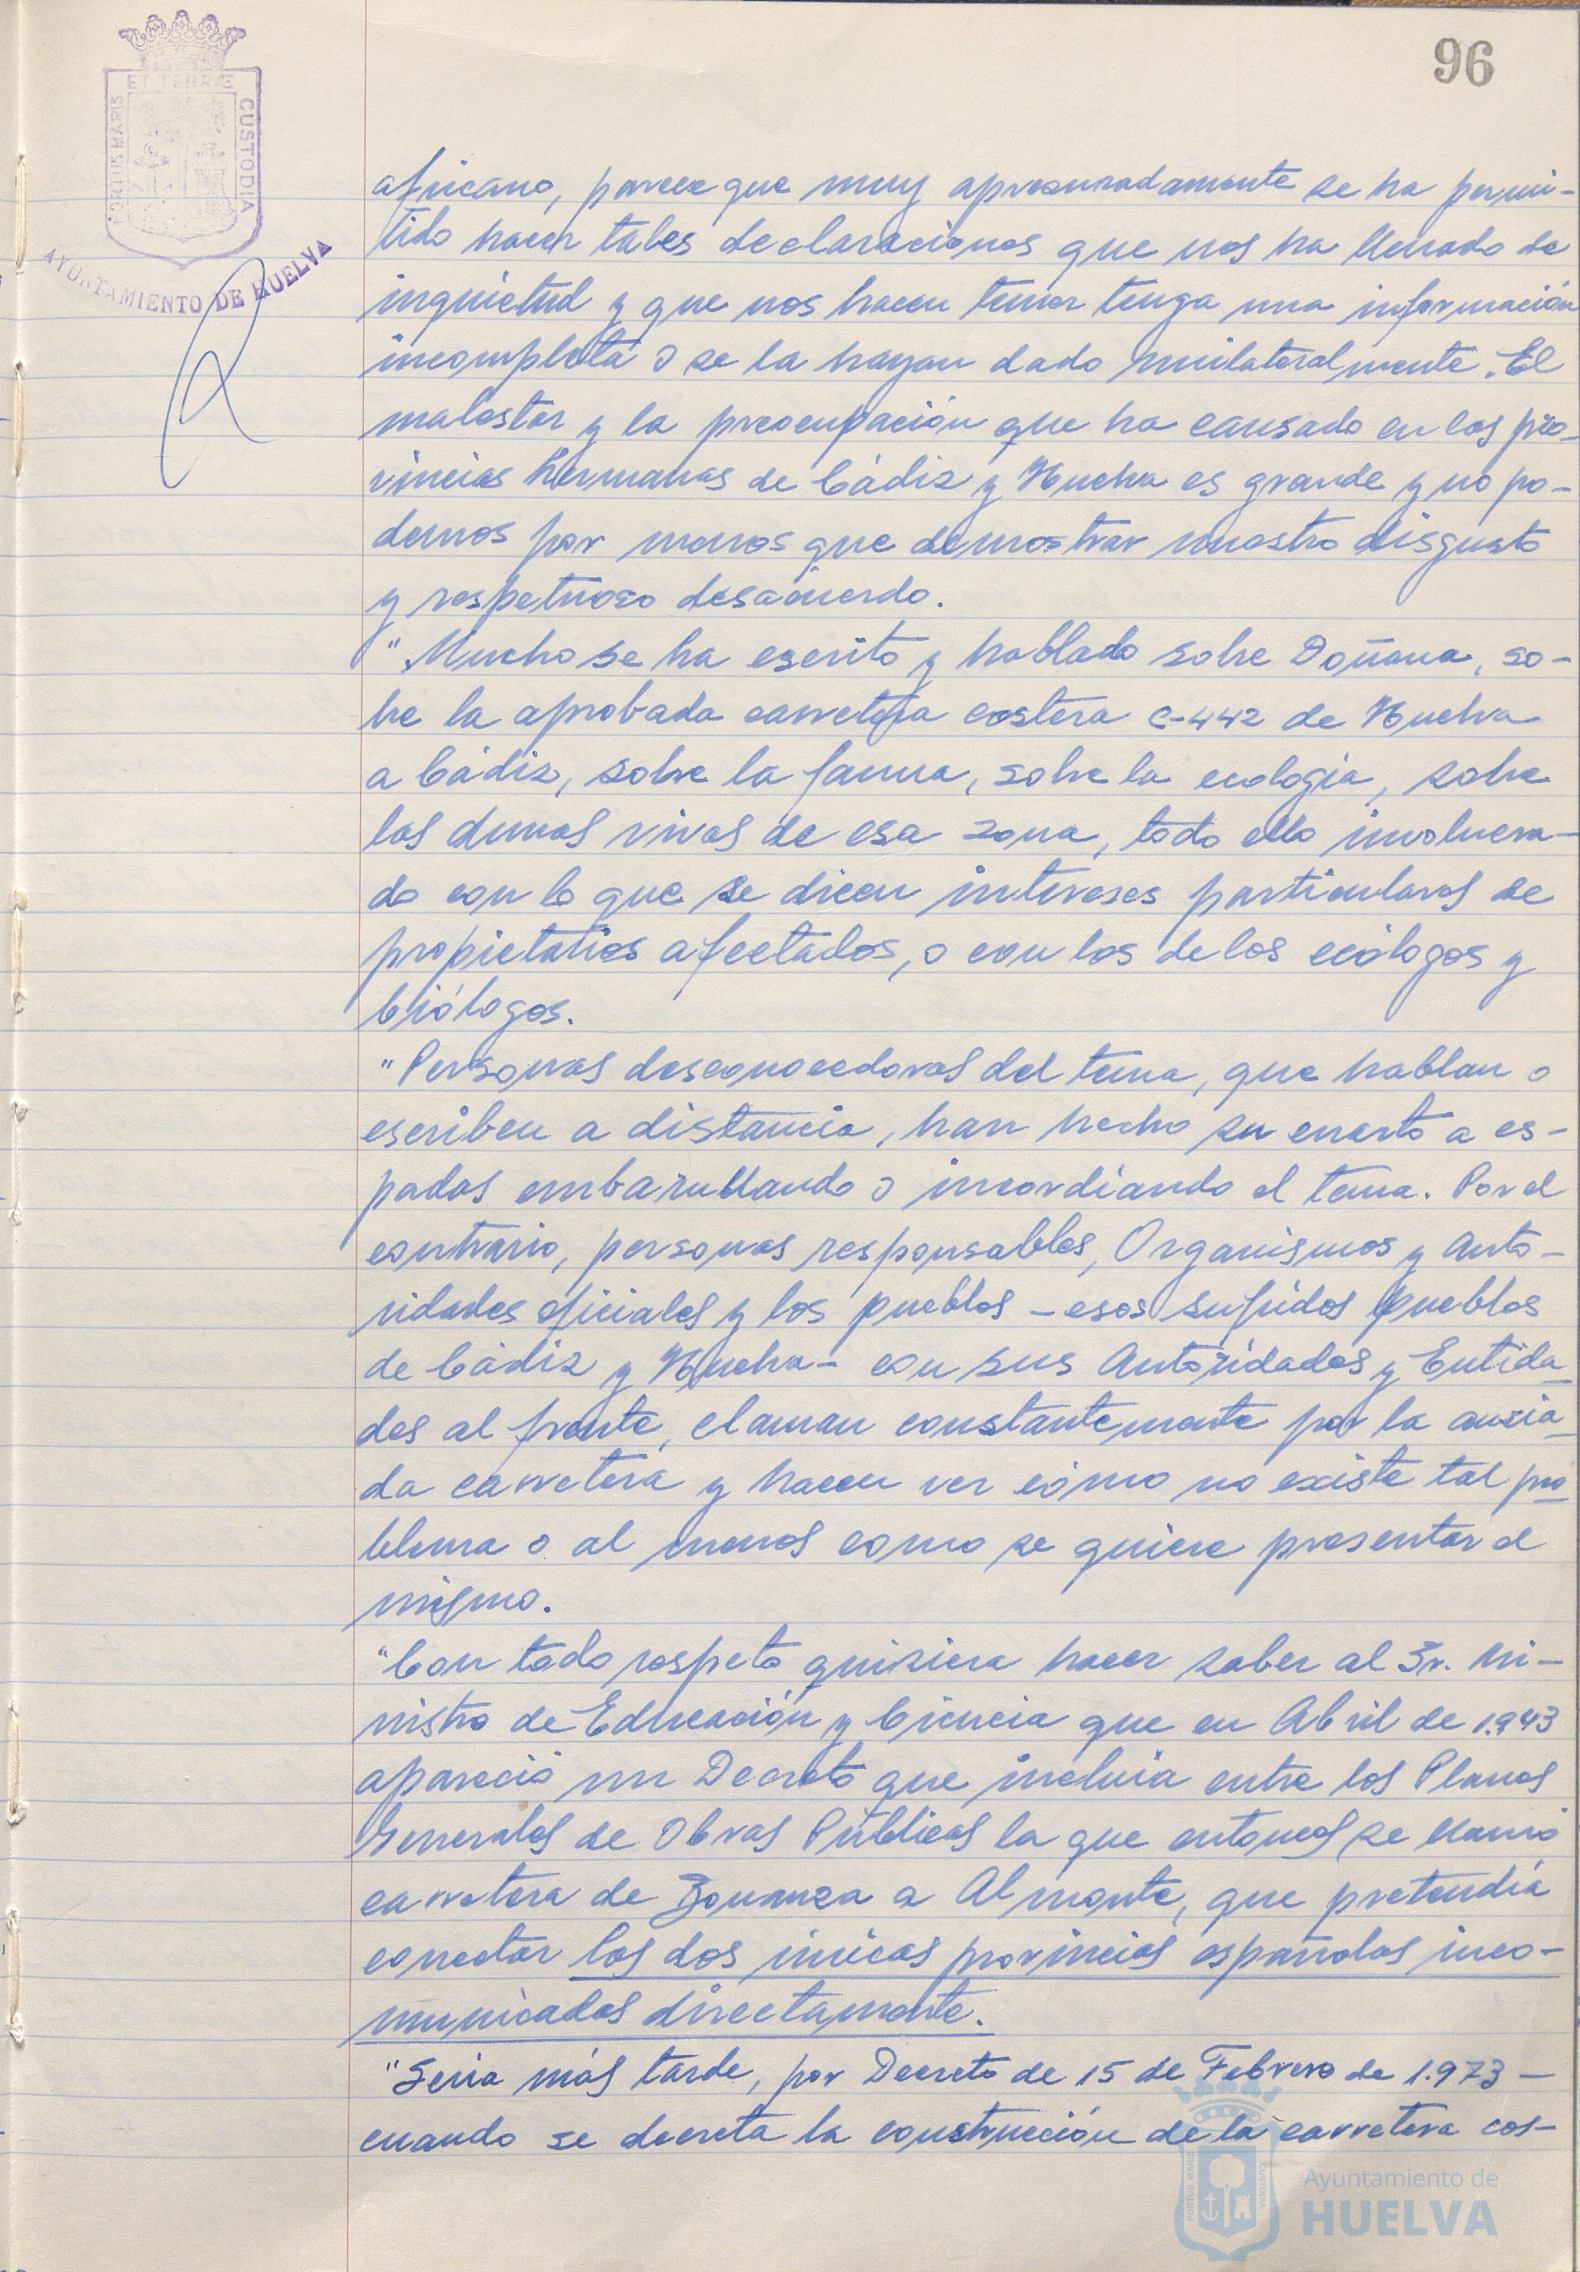 96
ET TERRÆ
PORTUS MARIS
CUSTODIA
AYUNTAMIENTO DE HUELVA
africano, parece que muy apresuradamente se ha permi-
tido hacer tales declaraciones que nos ha llenado de
inquietud y que nos hacen temer tenga una información
incompleta o se la hayan dado unilateralmente. El
malestar y la preocupación que ha causado en las pro-
vincias hermanas de Cádiz y Huelva es grande y no po-
demos por menos que demostrar nuestro disgusto
y respetuoso desacuerdo.
"Mucho se ha escrito y hablado sobre Doñana, so-
bre la aprobada carretera costera C-442 de Huelva
a Cádiz, sobre la fauna, sobre la ecología, sobre
las dunas vivas de esa zona, todo ello involucra-
do con lo que se dicen intereses particulares de
propietarios afectados, o con los de los ecólogos y
biólogos.
"Personas desconocedoras del tema, que hablan o
escriben a distancia, han hecho su cuarto a es-
padas embarullando o incordiando el tema. Por el
contrario, personas responsables, Organismos y Auto-
ridades oficiales y los pueblos - esos sufridos pueblos
de Cádiz y Huelva - con sus Autoridades y Entida-
des al frente, claman constantemente por la ansia-
da carretera y hacen ver cómo no existe tal pro-
blema o al menos como se quiere presentar el
mismo.
"Con todo respeto quisiera hacer saber al Sr. Mi-
nistro de Educación y Ciencia que en Abril de 1.943
apareció un Decreto que incluía entre los Planes
Generales de Obras Públicas la que entonces se llamó
carretera de Bonanza a Almonte, que pretendía
conectar las dos únicas provincias españolas inco-
municadas directamente.
"Sería más tarde, por Decreto de 15 de Febrero de 1.973 -
cuando se decreta la construcción de la carretera cos-
PORTUS MARIS
CUSTODIA
Ayuntamiento de
HUELVA